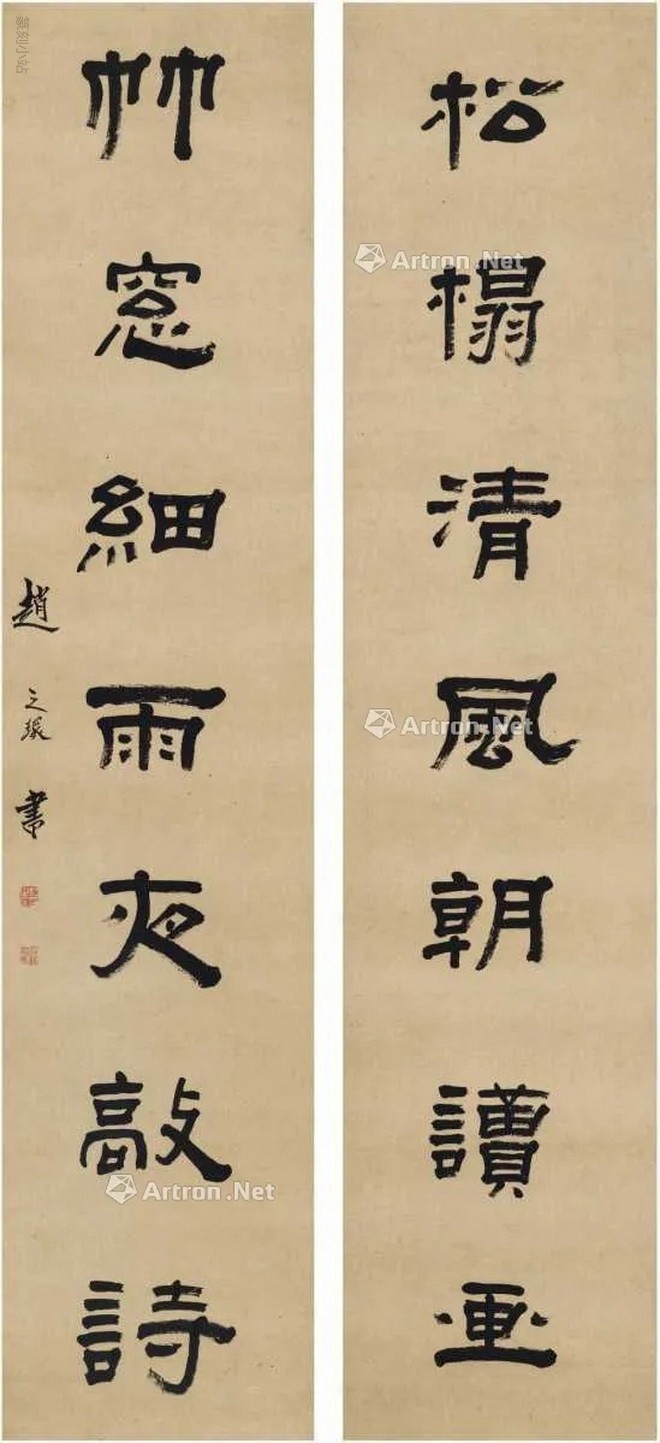 松榻清風朝讀画
竹窓細雨夜敲詩
趙之琛書
篆刻小站
Artron.Net
Artron.Net
Artron.Net